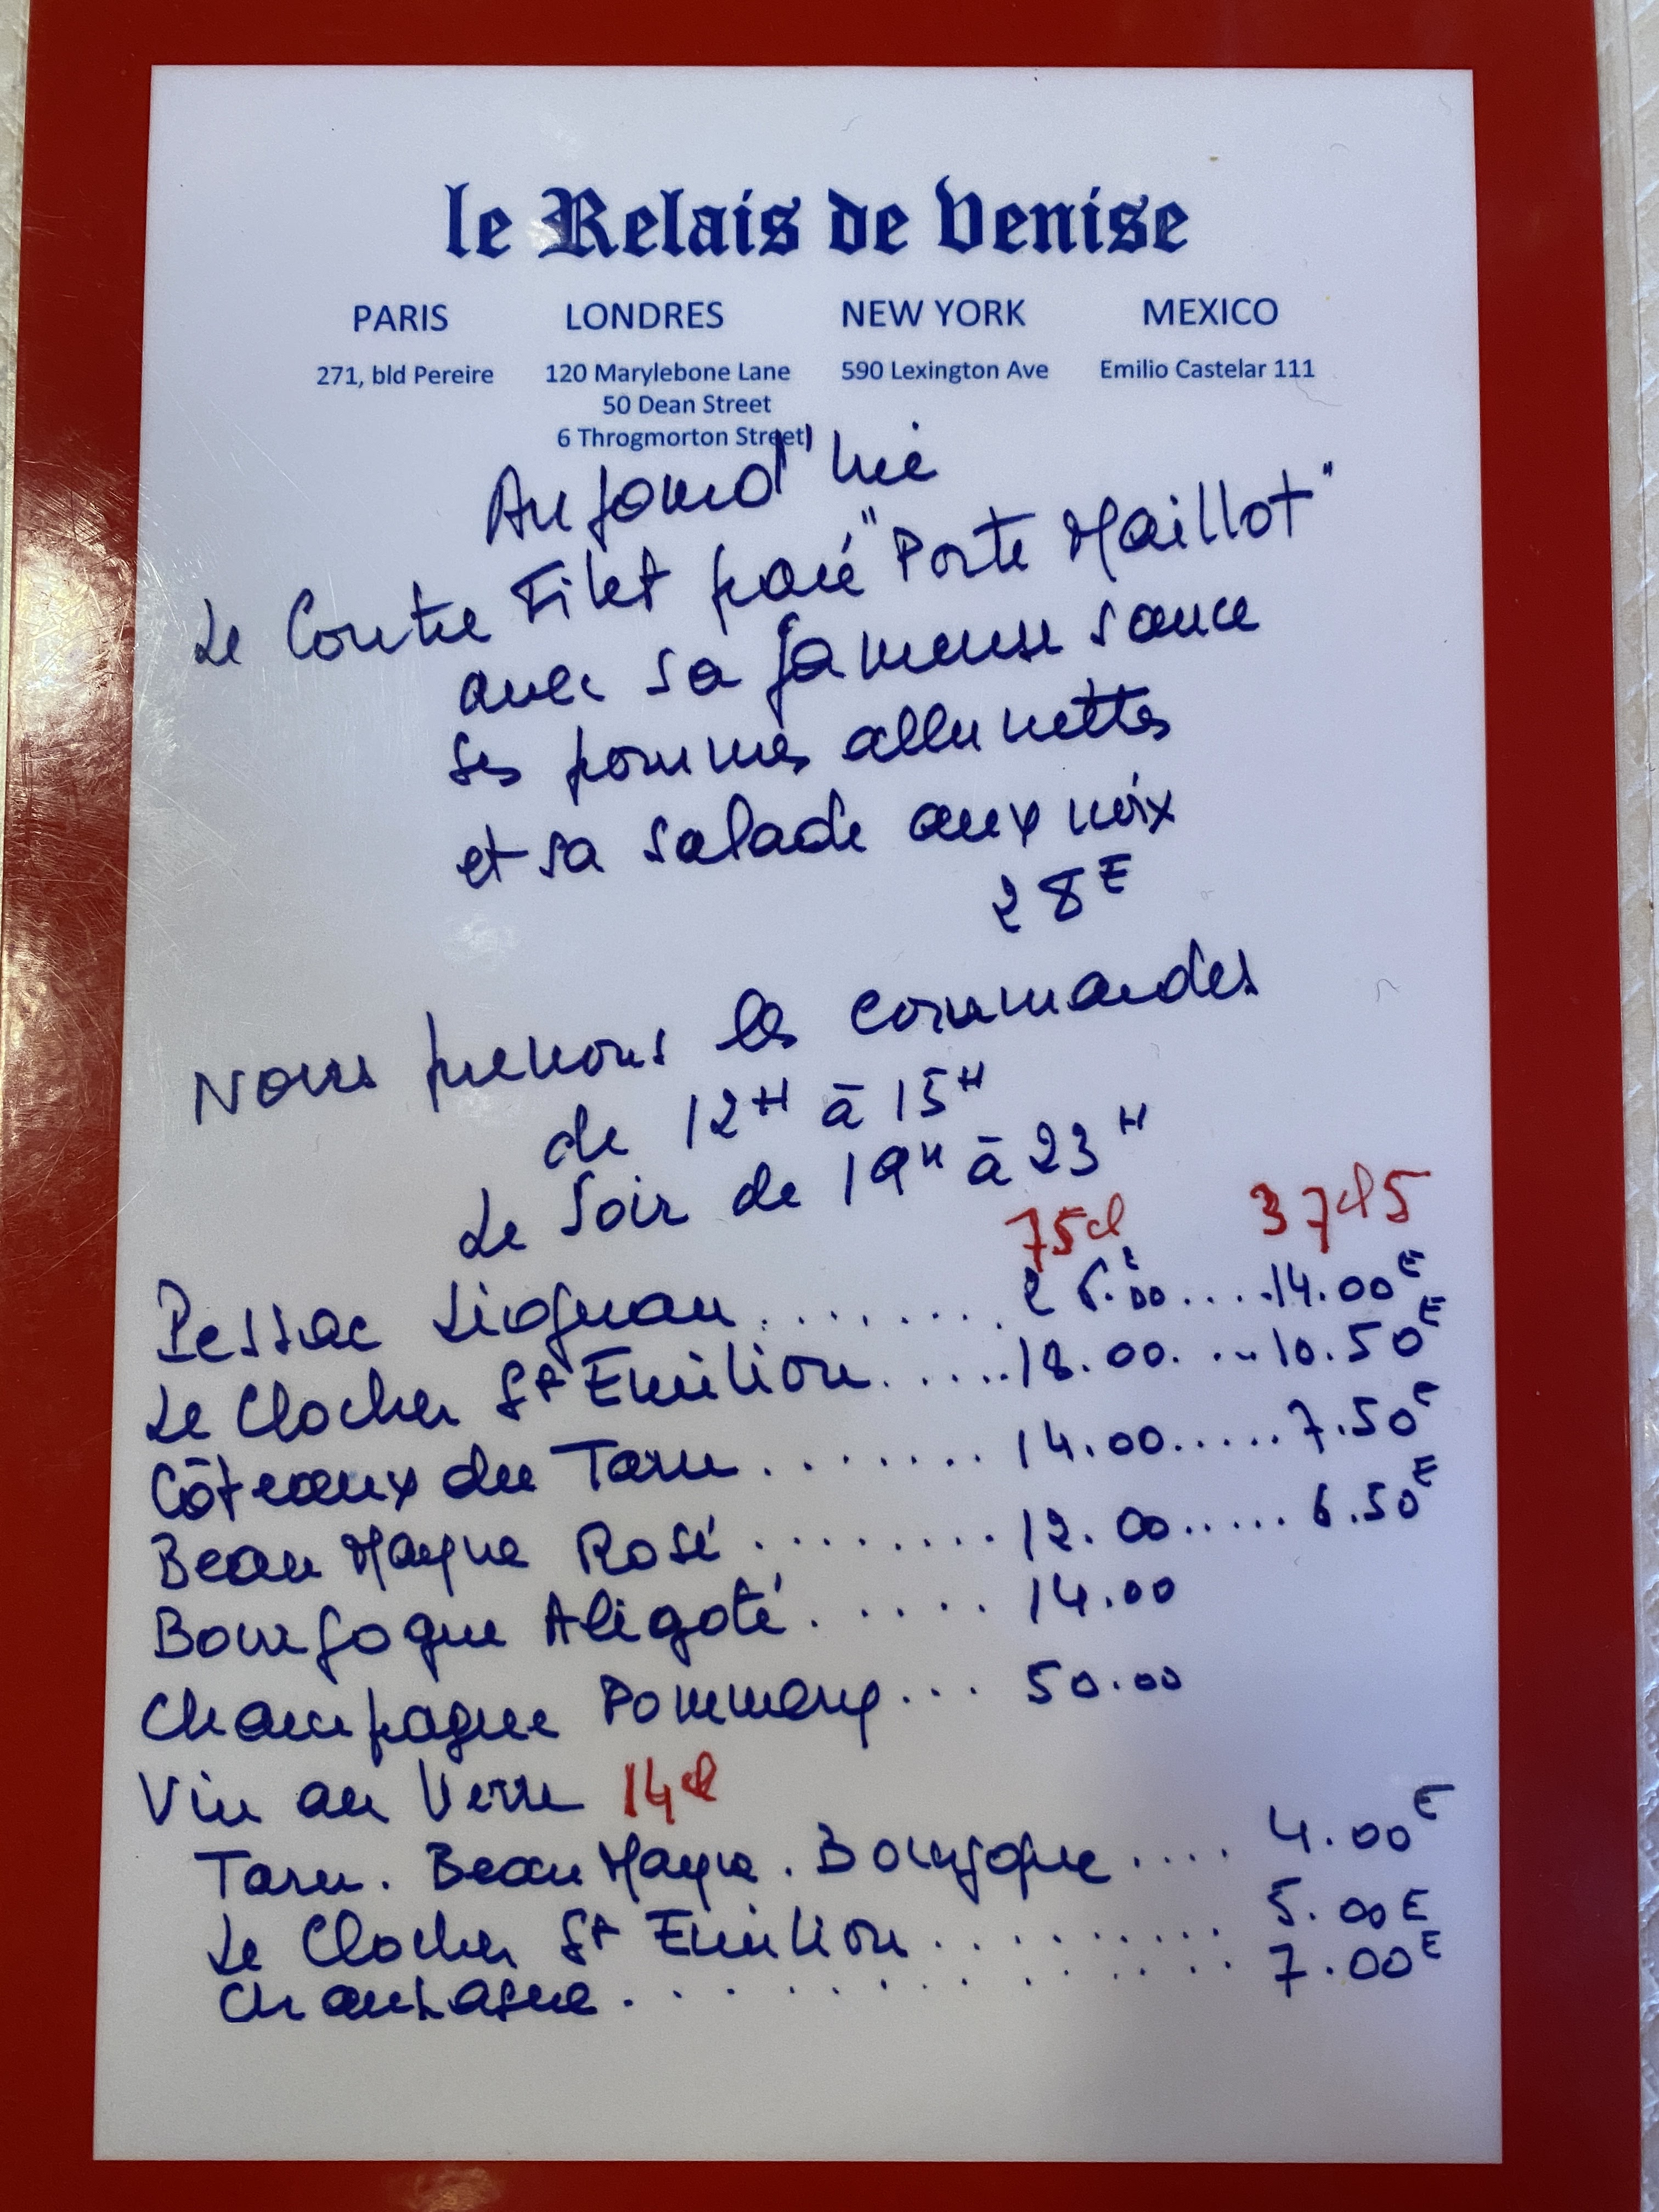 le Relais de Venise
PARIS LONDRES NEW YORK MEXICO
271, bld Pereire 120 Marylebone Lane 590 Lexington Ave Emilio Castelar 111
50 Dean Street
6 Throgmorton Street)
Aujourd'hui
Le Contre Filet paré "Porte Maillot"
avec sa fameuse sauce
Ses pommes allumettes
et sa salade aux noix
28E
Nous prenons les commandes
de 12H à 15H
Le Soir de 19H à 23H
75cl 37cl5
Pessac Léognan......... 26.00E.....14.00E
Le Clocher St Emilion......18.00....10.50E
Côteaux du Tarn........14.00.....7.50E
Beau Mayne Rosé.........12.00.....6.50E
Bourgogne Aligoté......14.00
Champagne Pommery... 50.00
Vin au Verre 14cl
Tarn. Beau Mayne. Bourgogne.... 4.00E
Le Clocher St Emilion.......... 5.00E
Champagne........... 7.00E